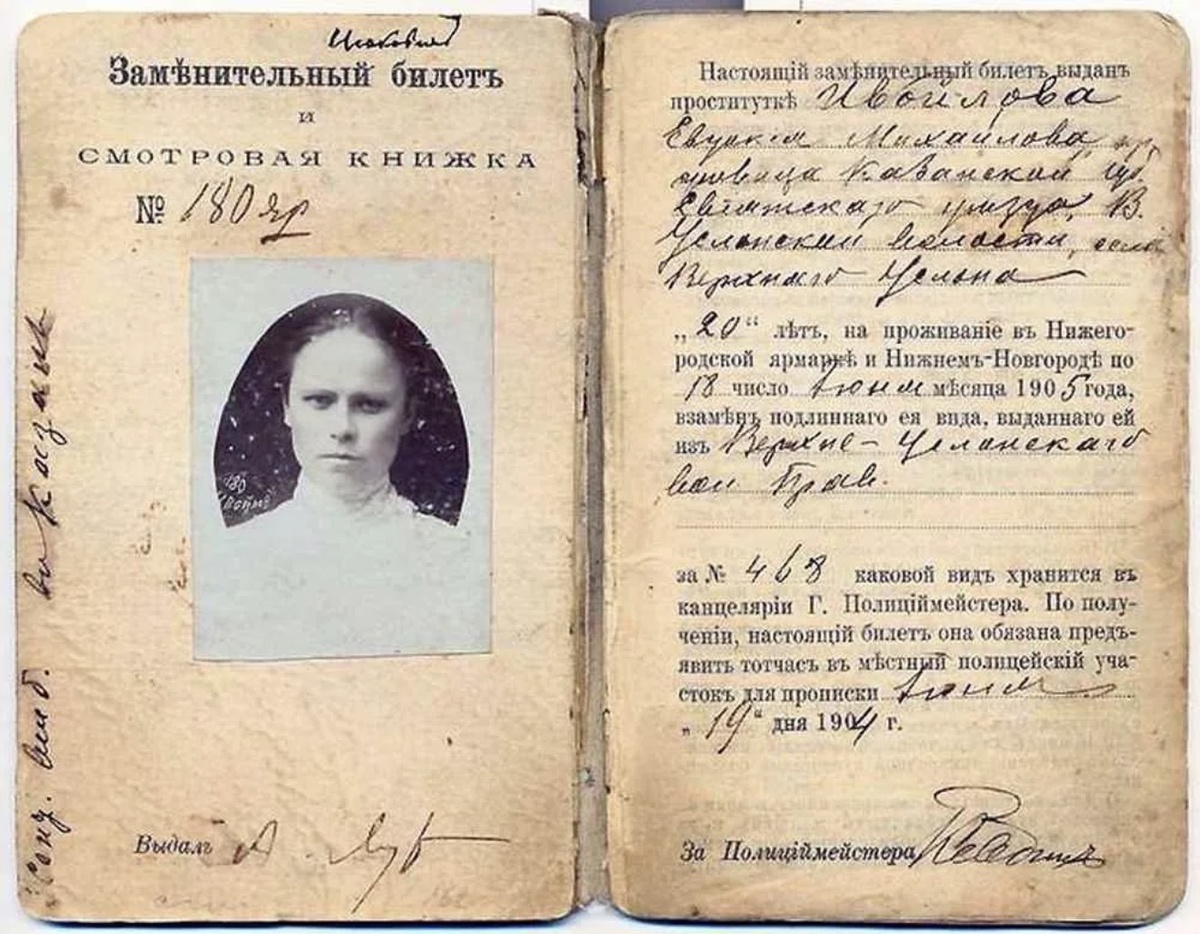 Замѣнительный билетъ
и
СМОТРОВАЯ КНИЖКА
№ 180 яр
180
Выдалъ
Настоящій замѣнительный билетъ выданъ
проституткѣ Ивойлова
Евдокия Михайлова
Казанской губ.
уезда, В.
Услонской волости, села
Верхняго Услона
„20“ лѣтъ, на проживаніе въ Нижего-
родской ярмаркѣ и Нижнемъ-Новгородѣ по
18 число Іюня мѣсяца 1905 года,
взамѣнъ подлиннаго ея вида, выданнаго ей
изъ Верхне-Услонскаго
вол Прав.
за № 468 каковой видъ хранится въ
канцеляріи Г. Полиціймейстера. По полу-
ченіи, настоящій билетъ она обязана предъ-
явить тотчасъ въ мѣстный полицейскій уча-
стокъ для прописки Іюня
„19“ дня 1904 г.
За Полиціймейстера